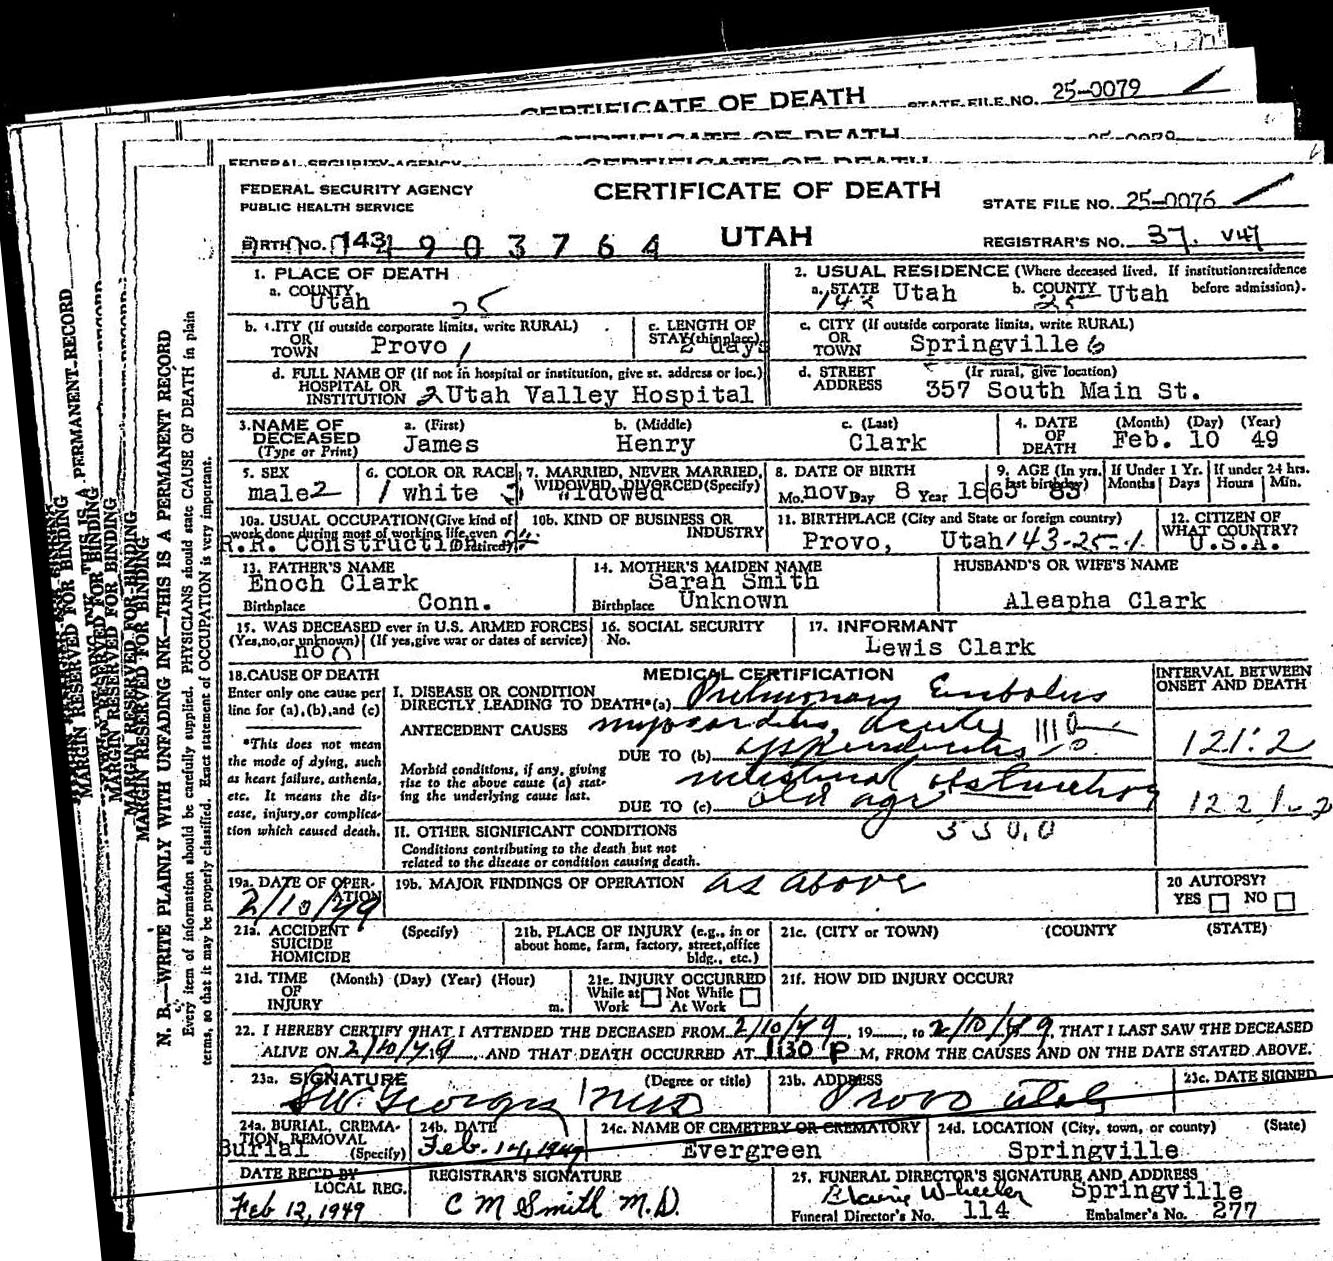 CERTIFICATE OF DEATH STATE FILE NO. 25-0079
CERTIFICATE OF DEATH
FEDERAL SECURITY AGENCY CERTIFICATE OF DEATH
FEDERAL SECURITY AGENCY
PUBLIC HEALTH SERVICE
CERTIFICATE OF DEATH
STATE FILE NO. 25-0076
BIRTH NO. 143 1 9 0 3 7 6 4
UTAH
REGISTRAR'S NO. 37. V47
1. PLACE OF DEATH
a. COUNTY
Utah 25
2. USUAL RESIDENCE (Where deceased lived. If institution:residence before admission).
a. STATE Utah b. COUNTY Utah
143 25
b. CITY (If outside corporate limits, write RURAL)
OR
TOWN Provo 1
c. LENGTH OF
STAY (this place)
2 days
c. CITY (If outside corporate limits, write RURAL)
OR
TOWN Springville 6
d. FULL NAME OF (If not in hospital or institution, give st. address or loc.)
HOSPITAL OR
INSTITUTION 2 Utah Valley Hospital
d. STREET (If rural, give location)
ADDRESS 357 South Main St.
3. NAME OF
DECEASED
(Type or Print)
a. (First)
James
b. (Middle)
Henry
c. (Last)
Clark
4. DATE
OF
DEATH
(Month) (Day) (Year)
Feb. 10 49
5. SEX
male 2
6. COLOR OR RACE
1 white
7. MARRIED, NEVER MARRIED,
WIDOWED, DIVORCED (Specify)
3 widowed
8. DATE OF BIRTH
Mo. nov Day 8 Year 1865
9. AGE (In yrs.
last birthday)
83
If Under 1 Yr.
Months Days
If under 24 hrs.
Hours Min.
10a. USUAL OCCUPATION (Give kind of
work done during most of working life, even
if retired)
R.R. Construction
10b. KIND OF BUSINESS OR
INDUSTRY
11. BIRTHPLACE (City and State or foreign country)
Provo, Utah 143-25-1
12. CITIZEN OF
WHAT COUNTRY?
U.S.A.
13. FATHER'S NAME
Enoch Clark
Birthplace Conn.
14. MOTHER'S MAIDEN NAME
Sarah Smith
Birthplace Unknown
HUSBAND'S OR WIFE'S NAME
Aleapha Clark
15. WAS DECEASED ever in U.S. ARMED FORCES
(Yes,no,or unknown) (If yes,give war or dates of service)
no 0
16. SOCIAL SECURITY
No.
17. INFORMANT
Lewis Clark
18. CAUSE OF DEATH
Enter only one cause per
line for (a),(b),and (c)
*This does not mean
the mode of dying, such
as heart failure, asthenia,
etc. It means the dis-
ease, injury, or complica-
tion which caused death.
MEDICAL CERTIFICATION
I. DISEASE OR CONDITION
DIRECTLY LEADING TO DEATH*(a) Pulmonary Embolus
ANTECEDENT CAUSES myocarditis, acute
DUE TO (b) appendicitis
Morbid conditions, if any, giving
rise to the above cause (a) stat-
ing the underlying cause last.
intestinal obstruction
DUE TO (c) old age
INTERVAL BETWEEN
ONSET AND DEATH
II. OTHER SIGNIFICANT CONDITIONS 550.0
Conditions contributing to the death but not
related to the disease or condition causing death.
19a. DATE OF OPER-
ATION
2/10/49
19b. MAJOR FINDINGS OF OPERATION as above
20 AUTOPSY?
YES NO
21a. ACCIDENT (Specify)
SUICIDE
HOMICIDE
21b. PLACE OF INJURY (e.g., in or
about home, farm, factory, street,office
bldg., etc.)
21c. (CITY or TOWN) (COUNTY (STATE)
21d. TIME (Month) (Day) (Year) (Hour)
OF
INJURY m.
21e. INJURY OCCURRED
While at Not While
Work At Work
21f. HOW DID INJURY OCCUR?
22. I HEREBY CERTIFY THAT I ATTENDED THE DECEASED FROM 2/10/49, 19___, to 2/10/49, THAT I LAST SAW THE DECEASED
ALIVE ON 2/10/49, AND THAT DEATH OCCURRED AT 1:30 P M, FROM THE CAUSES AND ON THE DATE STATED ABOVE.
23a. SIGNATURE (Degree or title)
23b. ADDRESS
Provo Utah
23c. DATE SIGNED
24a. BURIAL, CREMA-
TION, REMOVAL
(Specify)
Burial
24b. DATE
Feb. 14, 1949
24c. NAME OF CEMETERY OR CREMATORY
Evergreen
24d. LOCATION (City, town, or county) (State)
Springville
DATE REC'D BY
LOCAL REG.
Feb 12, 1949
REGISTRAR'S SIGNATURE
C M Smith M.D.
25. FUNERAL DIRECTOR'S SIGNATURE AND ADDRESS
Blaine Wheeler Springville
Funeral Director's No. 114 Embalmer's No. 277
MARGIN RESERVED FOR BINDING
N. B.—WRITE PLAINLY WITH UNFADING INK—THIS IS A PERMANENT RECORD
Every item of information should be carefully supplied. PHYSICIANS should state CAUSE OF DEATH in plain
terms, so that it may be properly classified. Exact statement of OCCUPATION is very important.